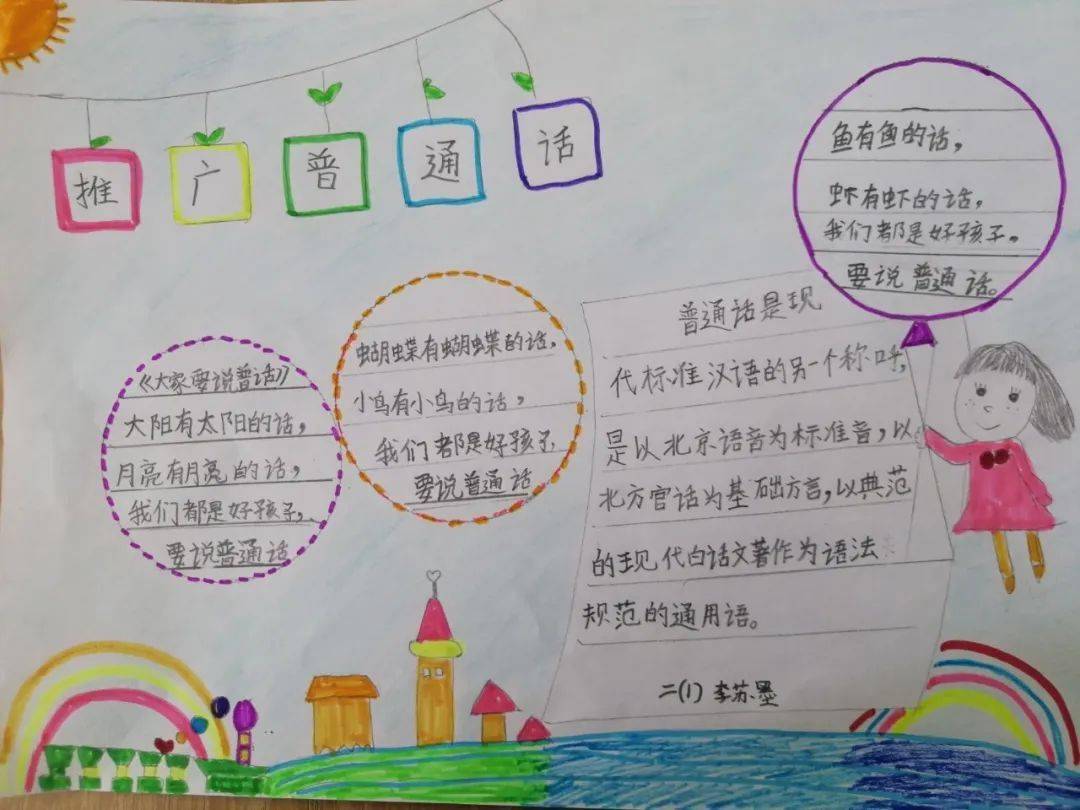 推广普通话
《大家要说普话》
大阳有太阳的话，
月亮有月亮的话，
我们都是好孩子，
要说普通话
蝴蝶有蝴蝶的话，
小鸟有小鸟的话，
我们都是好孩子
要说普通话
鱼有鱼的话，
虾有虾的话，
我们都是好孩子。
要说普通话。
普通话是现
代标准汉语的另一个称呼，
是以北京语音为标准音，以
北方官话为基础方言，以典范
的现代白话文著作为语法
规范的通用语。
二(1) 李苏墨